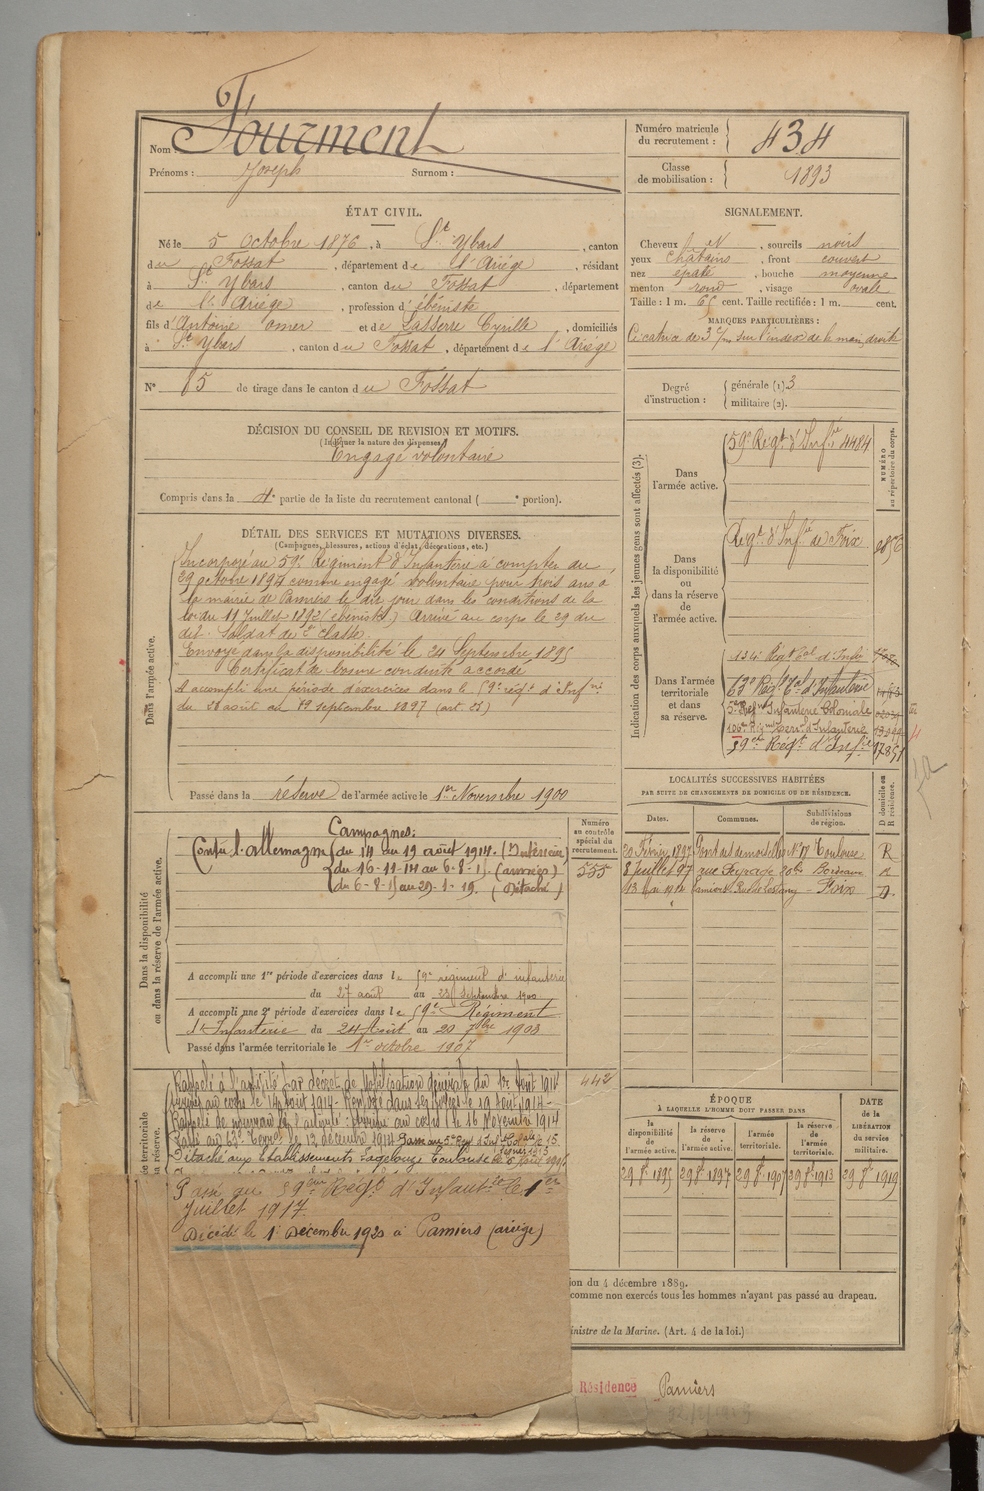 Nom : Fourment
Prénoms : Joseph Surnom :
Numéro matricule du recrutement : 434
Classe de mobilisation : 1893
ÉTAT CIVIL.
Né le 5 octobre 1876, à St Ybars, canton
du Fossat, département de l'Ariège, résidant
à St Ybars, canton du Fossat, département
de l'Ariège, profession d'ébéniste
fils d'Antoine omer et de Lasserre Cyrille, domiciliés
à St Ybars, canton du Fossat, département de l'Ariège
N° 85 de tirage dans le canton du Fossat
SIGNALEMENT.
Cheveux , sourcils noirs
yeux châtains, front couvert
nez épaté, bouche moyenne
menton rond, visage ovale
Taille : 1 m. 65 cent. Taille rectifiée : 1 m. cent.
MARQUES PARTICULIÈRES :
Cicatrice de 3 c/m sur l'index de la main droite
Degré d'instruction : générale (1). 3
militaire (2).
DÉCISION DU CONSEIL DE REVISION ET MOTIFS.
(Indiquer la nature des dispenses)
Engagé volontaire
Compris dans la 4e partie de la liste du recrutement cantonal ( e portion).
DÉTAIL DES SERVICES ET MUTATIONS DIVERSES.
(Campagnes, blessures, actions d'éclat, décorations, etc.)
Dans l'armée active.
Incorporé au 59e Régiment d'Infanterie à compter du
29 octobre 1894 comme engagé volontaire pour trois ans à
la mairie de Pamiers le dit jour dans les conditions de la
loi du 11 Juillet 1892 (ébéniste) Arrivé au corps le 29 du
dit. Soldat de 2e classe.
Envoyé dans la disponibilité le 24 Septembre 1895
Certificat de bonne conduite accordé
A accompli une période d'exercices dans le 59e régt d'Infrie
du août au septembre 1897
Passé dans la réserve de l'armée active le 1er Novembre 1900
Indication des corps auxquels les jeunes gens sont affectés (3).
NUMÉRO au répertoire du corps.
Dans l'armée active.
59e Régt d'Infie 4484
Dans la disponibilité ou dans la réserve de l'armée active.
Régt d'Infie de Foix
Dans l'armée territoriale et dans sa réserve.
134e Régt Tal d'Infie
63e Régt Tal d'Infanterie
5e Regt Infanterie Coloniale
106e d'Infanterie
59e Régt d'Infie 17851
LOCALITÉS SUCCESSIVES HABITÉES
PAR SUITE DE CHANGEMENTS DE DOMICILE OU DE RÉSIDENCE.
D domicile ou R résidence.
Dates. Communes. Subdivisions de région.
20 Février 1897 Pont des demoiselles N° 17 Toulouse R
8 Juillet 97 rue Bordeaux R
13 1912 Pamiers Rue Foix D
Dans la disponibilité ou dans la réserve de l'armée active.
Numéro au contrôle spécial du recrutement.
555
Campagnes:
Contre l'Allemagne (du 14 au 19 août 1914. (Intérieur)
(du 16-11-14 au 6-8-1 (armées)
(du 6-8-1 au 29-1-19. (Détaché)
A accompli une 1re période d'exercices dans le 59e régiment d'infanterie
du 27 août au 23 Septembre 1900
A accompli une 2e période d'exercices dans le 59e Régiment
d'Infanterie du 24 Août au 20 7bre 1903
Passé dans l'armée territoriale le 1er octobre 1907
442
Rappelé à l'activité par décret de Mobilisation générale du 1er Août 1914
Arrivé au corps le 14 Août 1914. Renvoyé dans ses foyers le 19 Août 1914
Rappelé de nouveau à l'activité : arrivé au corps le 16 Novembre 1914
Passé au 63e Terral le 12 décembre 1914 Passé au 5e Reg d'Infie Colale 15
Détaché aux Etablissements Toulouse le 6 Août 1915
Passé au 59eme Régt d'Infantrie le 1er
Juillet 1917.
Décédé le 1 Décembre 1920 à Pamiers (Ariège)
ÉPOQUE
À LAQUELLE L'HOMME DOIT PASSER DANS
la disponibilité de l'armée active.
la réserve de l'armée active.
l'armée territoriale.
la réserve de l'armée territoriale.
DATE de la LIBÉRATION du service militaire.
29 8bre 1895 29 8bre 1897 29 8bre 1907 29 8bre 1913 29 8bre 1919
ion du 4 décembre 1889.
comme non exercés tous les hommes n'ayant pas passé au drapeau.
inistre de la Marine. (Art. 4 de la loi.)
Résidence Pamiers